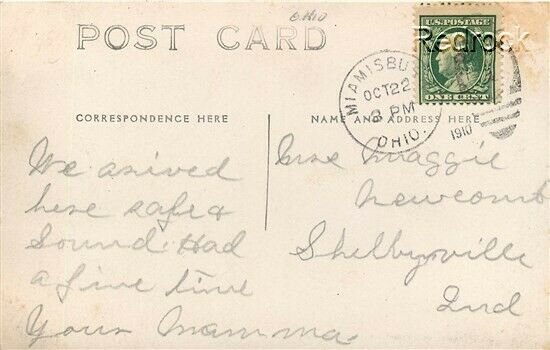 Ohio
POST CARD
U.S. POSTAGE
Redrock
ONE CENT
MIAMISBU
OCT 22
PM
1910
OHIO.
CORRESPONDENCE HERE
NAME AND ADDRESS HERE
We arived
here safe &
Sound. Had
a fine time
Your Mamma.
Mrs Maggie
Newcomb
Shelbyville
Ind